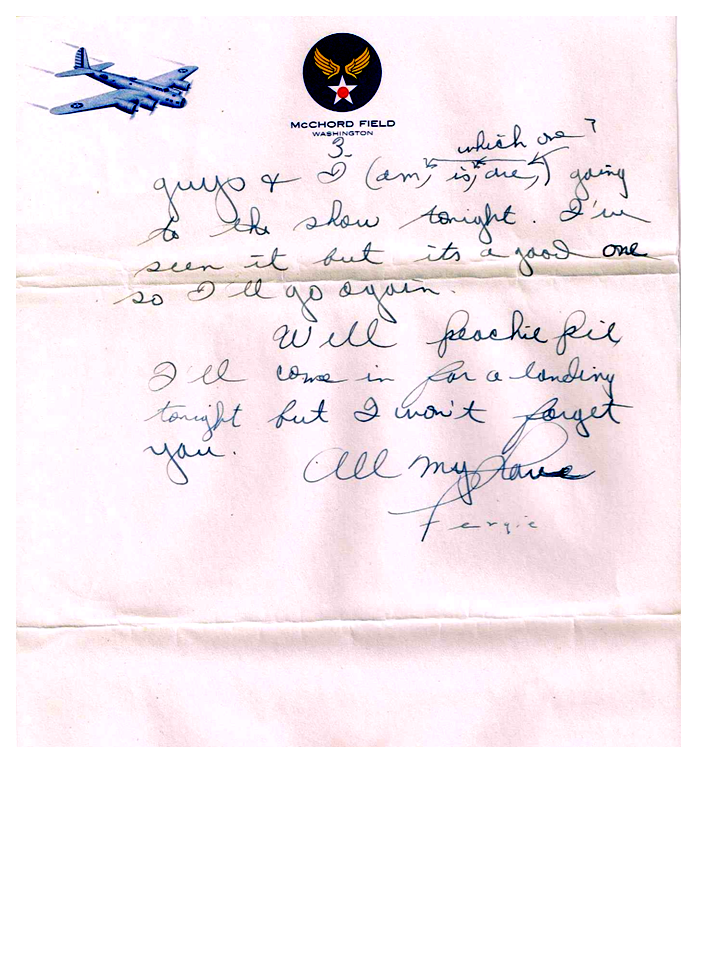 McCHORD FIELD
WASHINGTON
3.
which one?
guys & I (am, is, are,) going
to the show tonight. I've
seen it but its a good one
so I'll go again.
Well peachie pie,
I'll come in for a landing
tonight but I won't forget
you.
All my love
Fergie